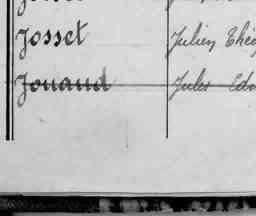 Josset Julien Théo
Jouaud Jules Edm